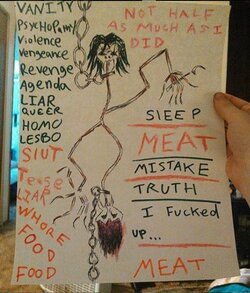 VANITY
PsycHoPathy
Violence
Vengeance
Revenge
Agenda
LIAR
QUEER
HOMO
LESBO
SlUT
Tease
LIAR
WHORE
FOOD
FOOD
NOT HALF
AS MUCH AS I
DID
SlEEP
MEAT
MISTAKE
TRUTH
I Fucked
UP...
MEAT